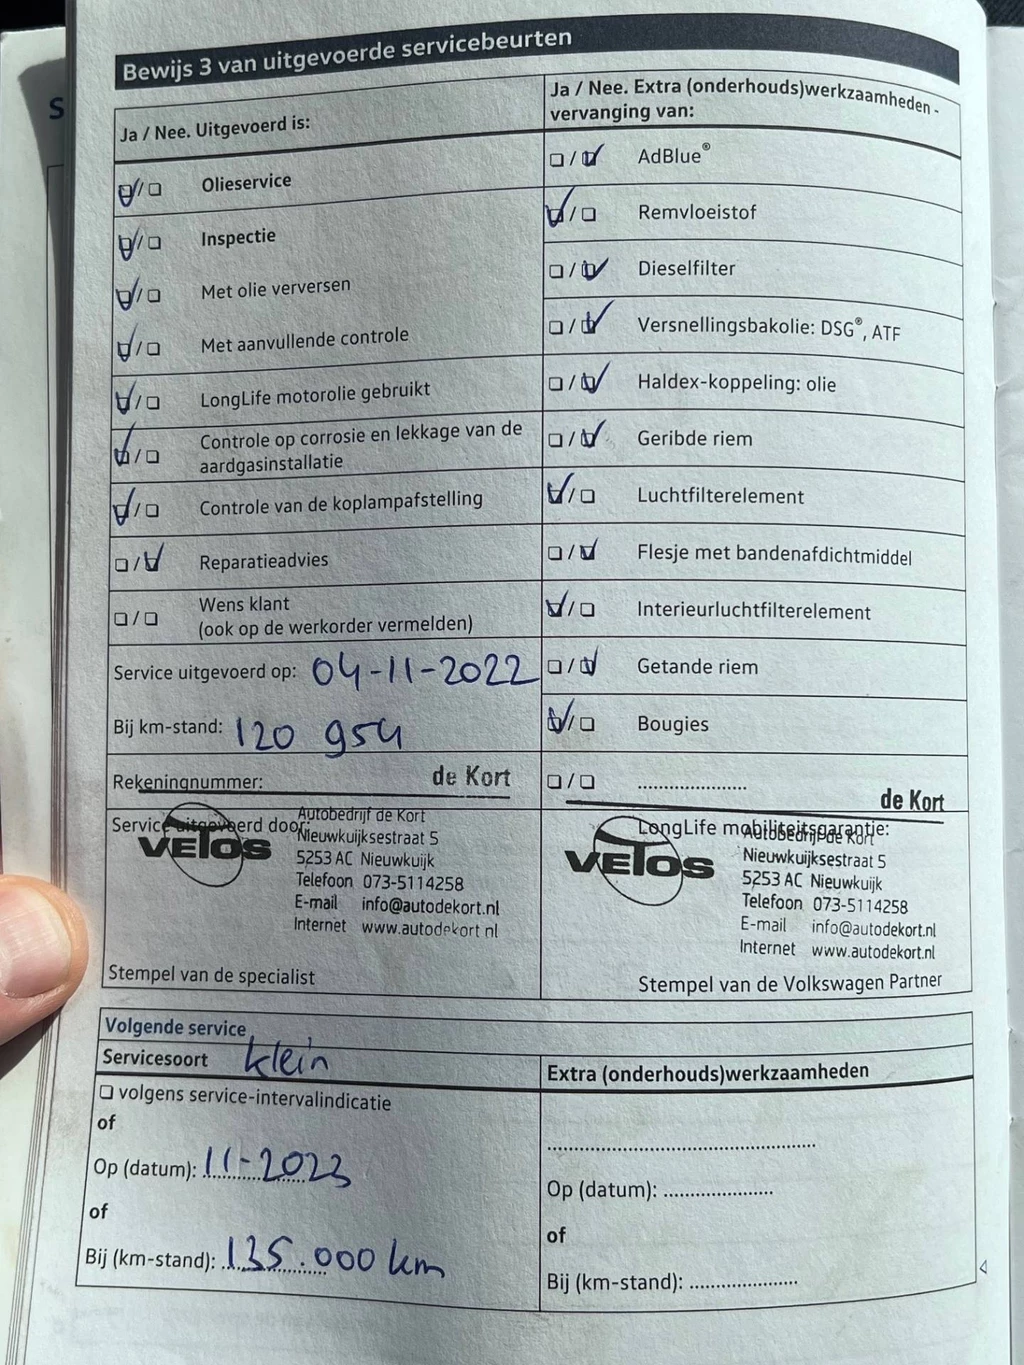 S
Bewijs 3 van uitgevoerde servicebeurten
Ja / Nee. Uitgevoerd is:
Olieservice
Inspectie
Met olie verversen
Met aanvullende controle
LongLife motorolie gebruikt
Controle op corrosie en lekkage van de
aardgasinstallatie
Controle van de koplampafstelling
Reparatieadvies
Wens klant
(ook op de werkorder vermelden)
Service uitgevoerd op: 04-11-2022
Bij km-stand: 120 954
Rekeningnummer:
de Kort
Service uitgevoerd door:
VELOS
Autobedrijf de Kort
Nieuwkuijksestraat 5
5253 AC Nieuwkuijk
Telefoon 073-5114258
E-mail info@autodekort.nl
Internet www.autodekort.nl
Stempel van de specialist
Ja / Nee. Extra (onderhouds)werkzaamheden -
vervanging van:
AdBlue®
Remvloeistof
Dieselfilter
Versnellingsbakolie: DSG®, ATF
Haldex-koppeling: olie
Geribde riem
Luchtfilterelement
Flesje met bandenafdichtmiddel
Interieurluchtfilterelement
Getande riem
Bougies
....................
de Kort
LongLife mobiliteitsgarantie:
VELOS
Autobedrijf de Kort
Nieuwkuijksestraat 5
5253 AC Nieuwkuijk
Telefoon 073-5114258
E-mail info@autodekort.nl
Internet www.autodekort.nl
Stempel van de Volkswagen Partner
Volgende service
Servicesoort klein
volgens service-intervalindicatie
of
Op (datum): 11-2023
of
Bij (km-stand): 135.000 km
Extra (onderhouds)werkzaamheden
..................................................
Op (datum): ....................
of
Bij (km-stand): ....................